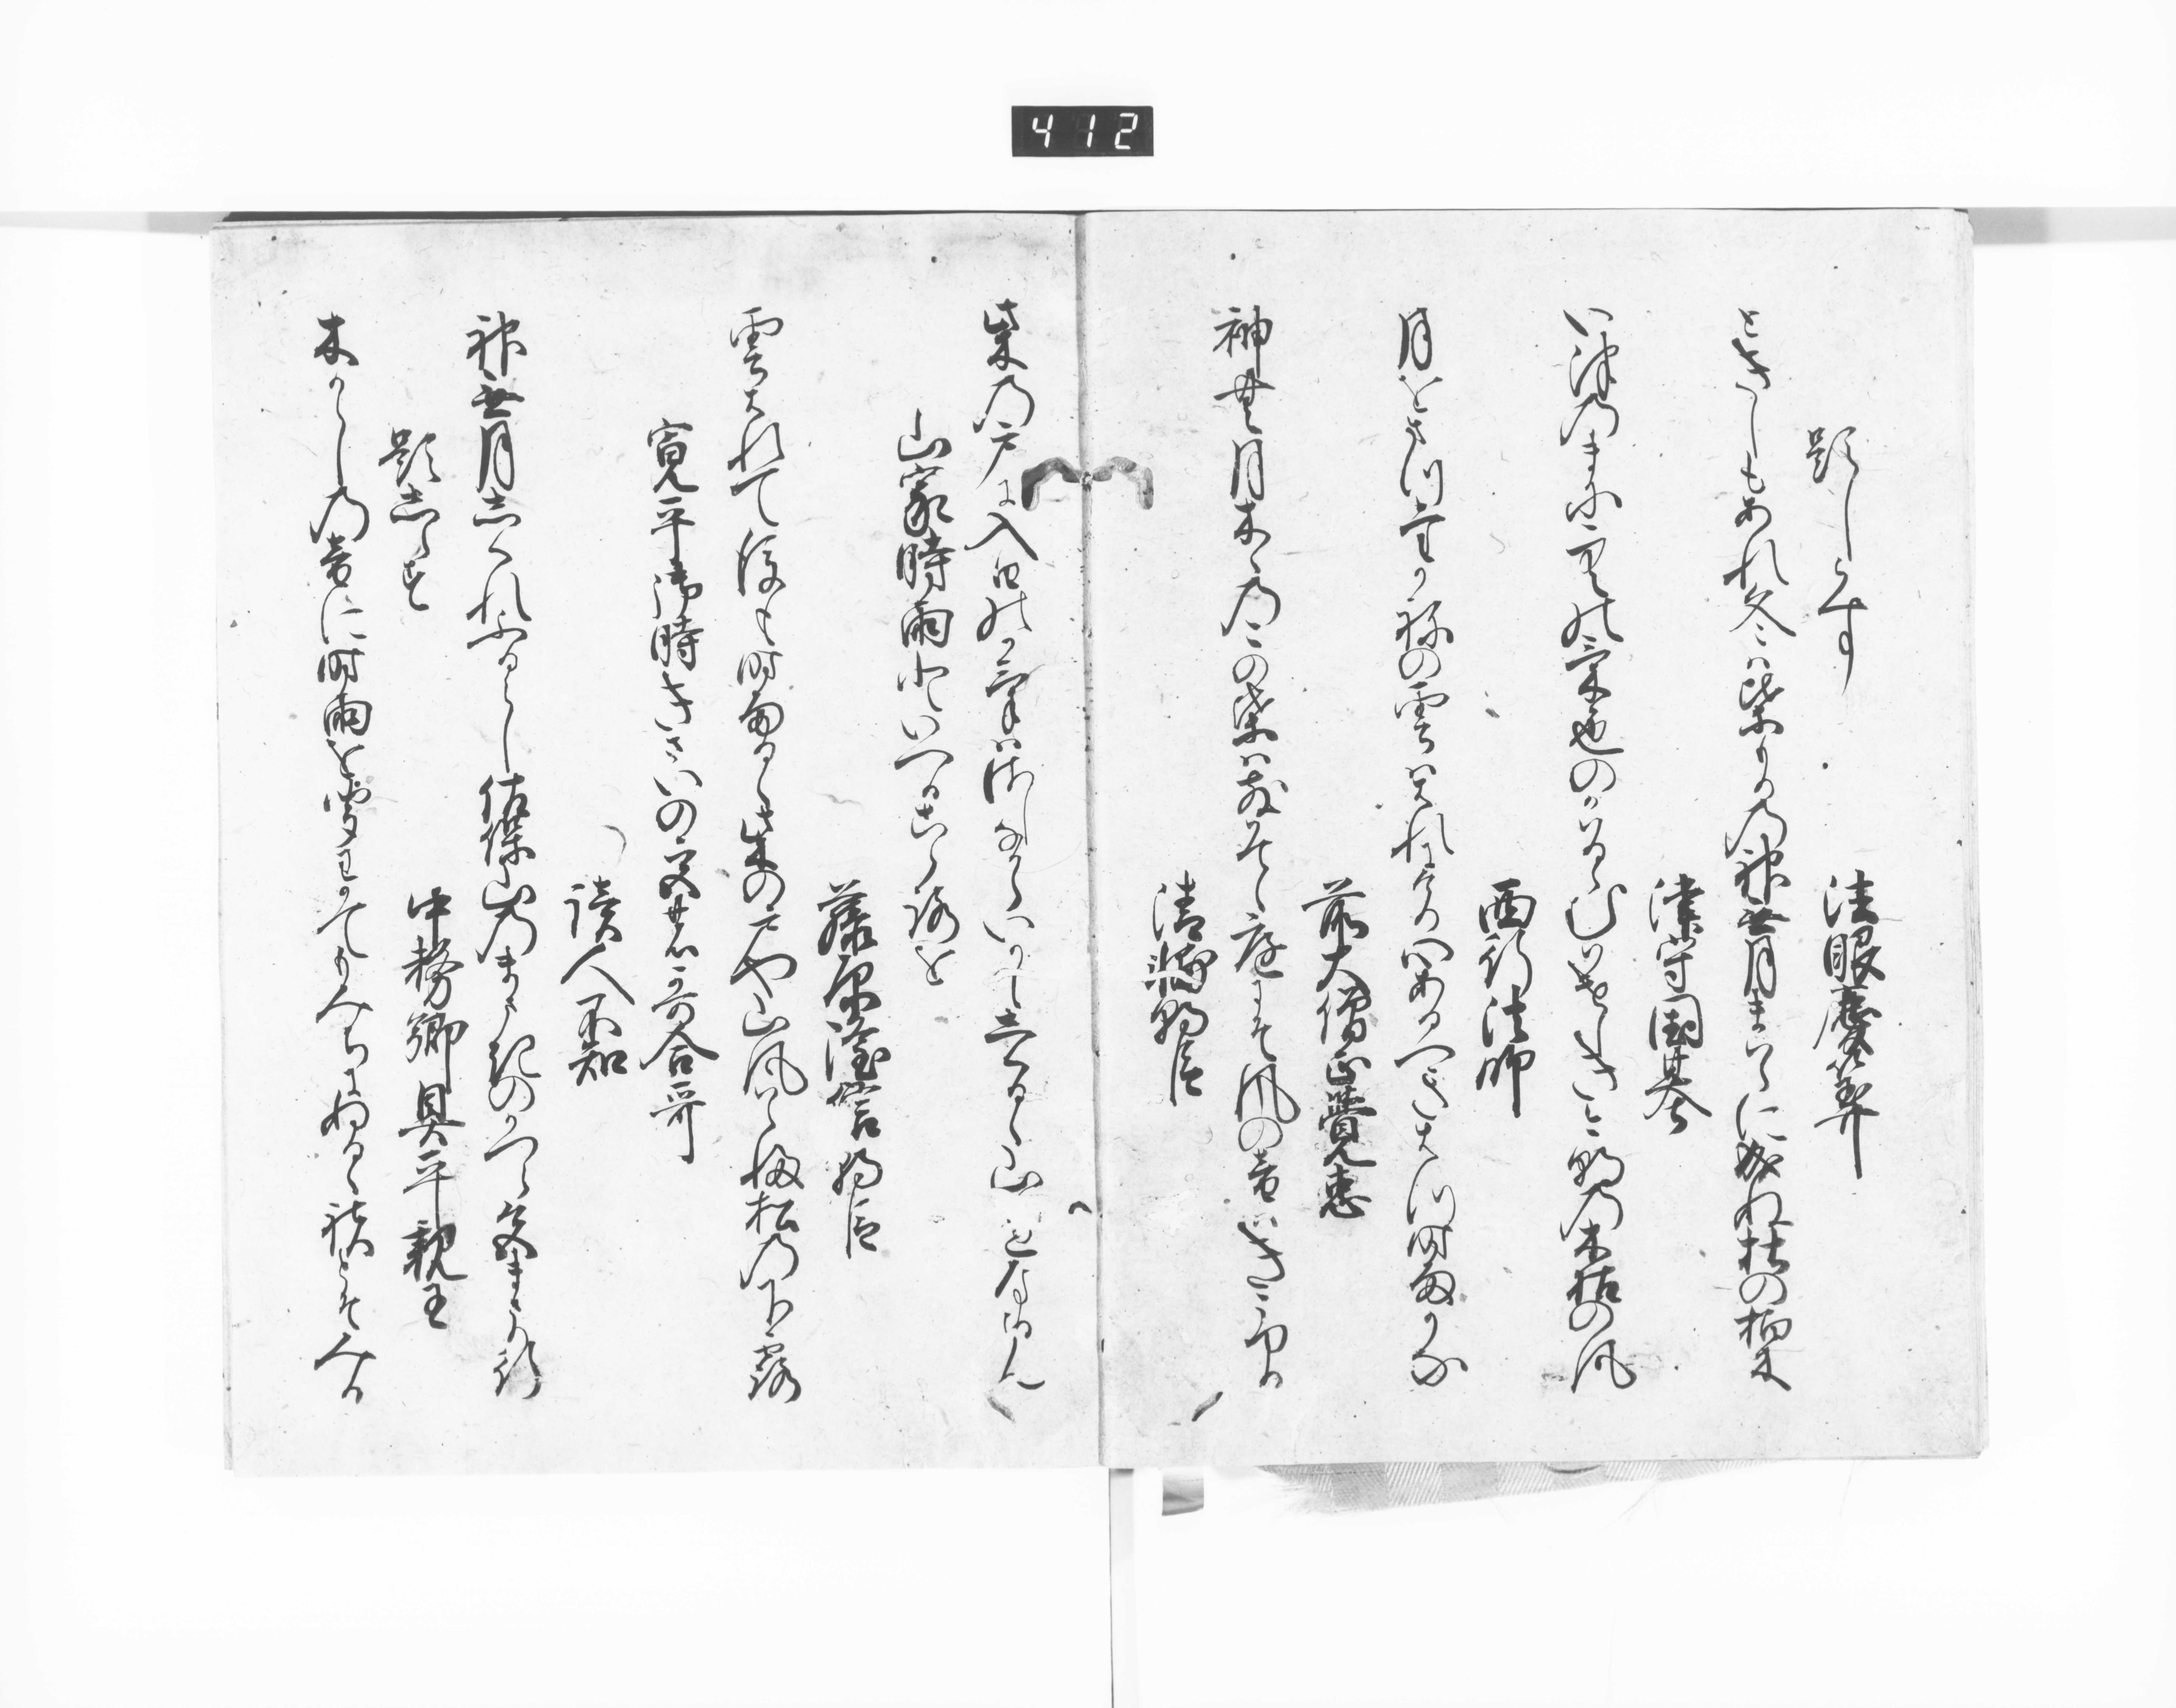 412
題しらす
法眼慶算
ときしもあれ冬は柴かの神無月まはらに成ぬ杜の柏木
津守国基
いつのまに空の気色のかはるらむはけしきけさの木枯の風
西行法師
月をまつたかねの雲ははれにけり心あるへきはつ時雨かな
前大僧正覚忠
神無月木々のこの葉はちりはてゝ庭にそ風の音はきこゆる
清輔朝臣
柴の戸に入日の影はさしなからいかて時雨るゝ山となるらん
山家時雨といへるこゝろを
藤原隆信朝臣
雲はれて後も時雨るゝ柴の戸や山風はらふ松の下露
寛平御時きさいの宮の哥合哥
読人不知
神無月しくれふるらし佐保山のまさきのかつら色まさり行
題しらす
中務卿具平親王
木からしの音に時雨を聞わかてもみちにぬるゝ袂とそみる